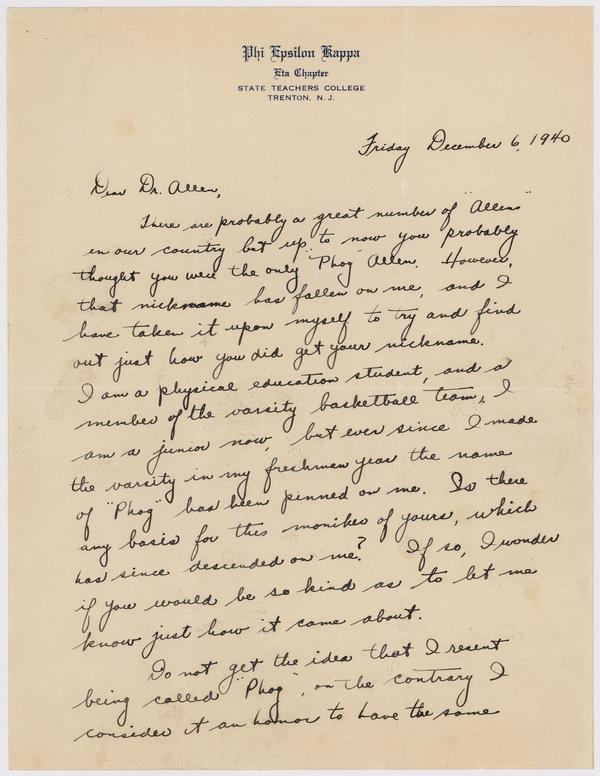 Phi Epsilon Kappa
Eta Chapter
STATE TEACHERS COLLEGE
TRENTON, N. J.
Friday December 6, 1940
Dear Dr. Allen,
There are probably a great number of "Allens"
in our country but up to now you probably
thought you were the only "Phog" Allen. However,
that nickname has fallen on me, and I
have taken it upon myself to try and find
out just how you did get your nickname.
I am a physical education student, and a
member of the varsity basketball team, I
am a junior now, but ever since I made
the varsity in my freshman year the name
of "Phog" has been pinned on me. Is there
any basis for this moniker of yours, which
has since descended on me? If so, I wonder
if you would be so kind as to let me
know just how it came about.
Do not get the idea that I resent
being called "Phog", on the contrary I
consider it an honor to have the same